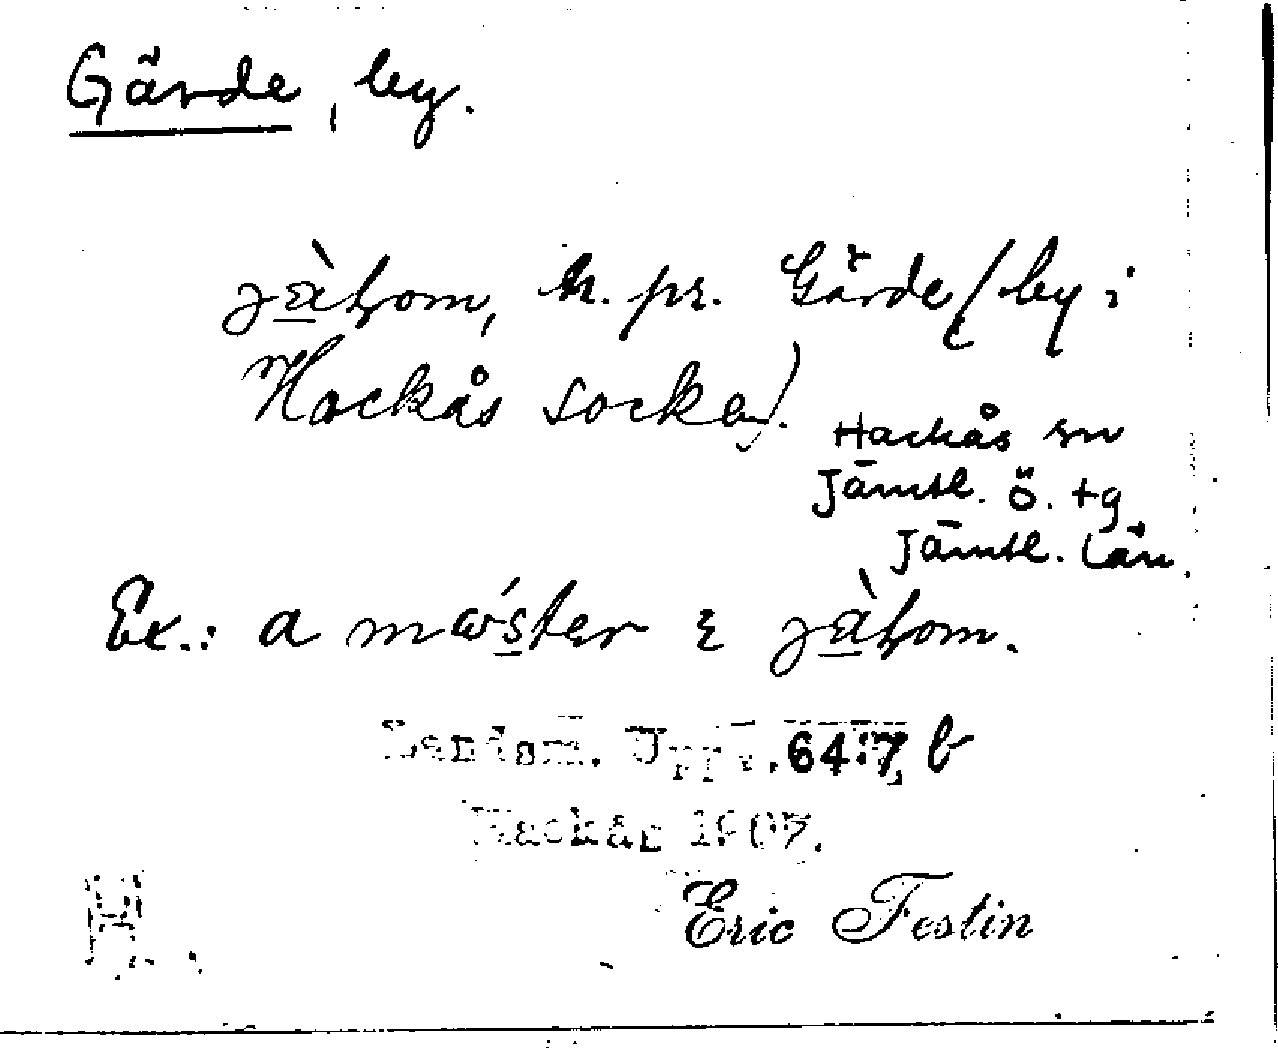 Gärde, by.
jàʜom, n. pr. Gärde (by i
Hackås socken).
Hackås sn
Jämtl. ö. tg
Jämtl. län.
Ex.: a
Landsm. Uppt. 647 b
Hackås 1907.
H.
Eric Festin